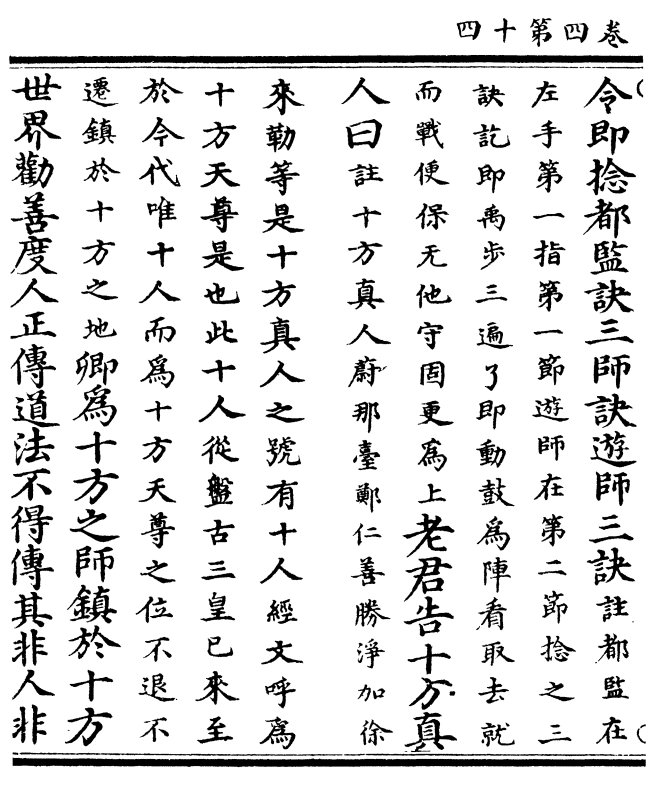 卷四第十四
令即捻都監訣三師訣遊師三訣註都監在
左手第一指第一節遊師在第二節捻之三
訣訖即禹步三遍了即動鼓爲陣看取去就
而戰便保无他守固更爲上老君告十方真
人曰註十方真人蔚那臺鄭仁善勝淨加徐
來勒等是十方真人之號有十人經文呼爲
十方天尊是也此十人從盤古三皇已來至
於今代唯十人而爲十方天尊之位不退不
遷鎮於十方之地卿爲十方之師鎮於十方
世界勸善度人正傳道法不得傳其非人非